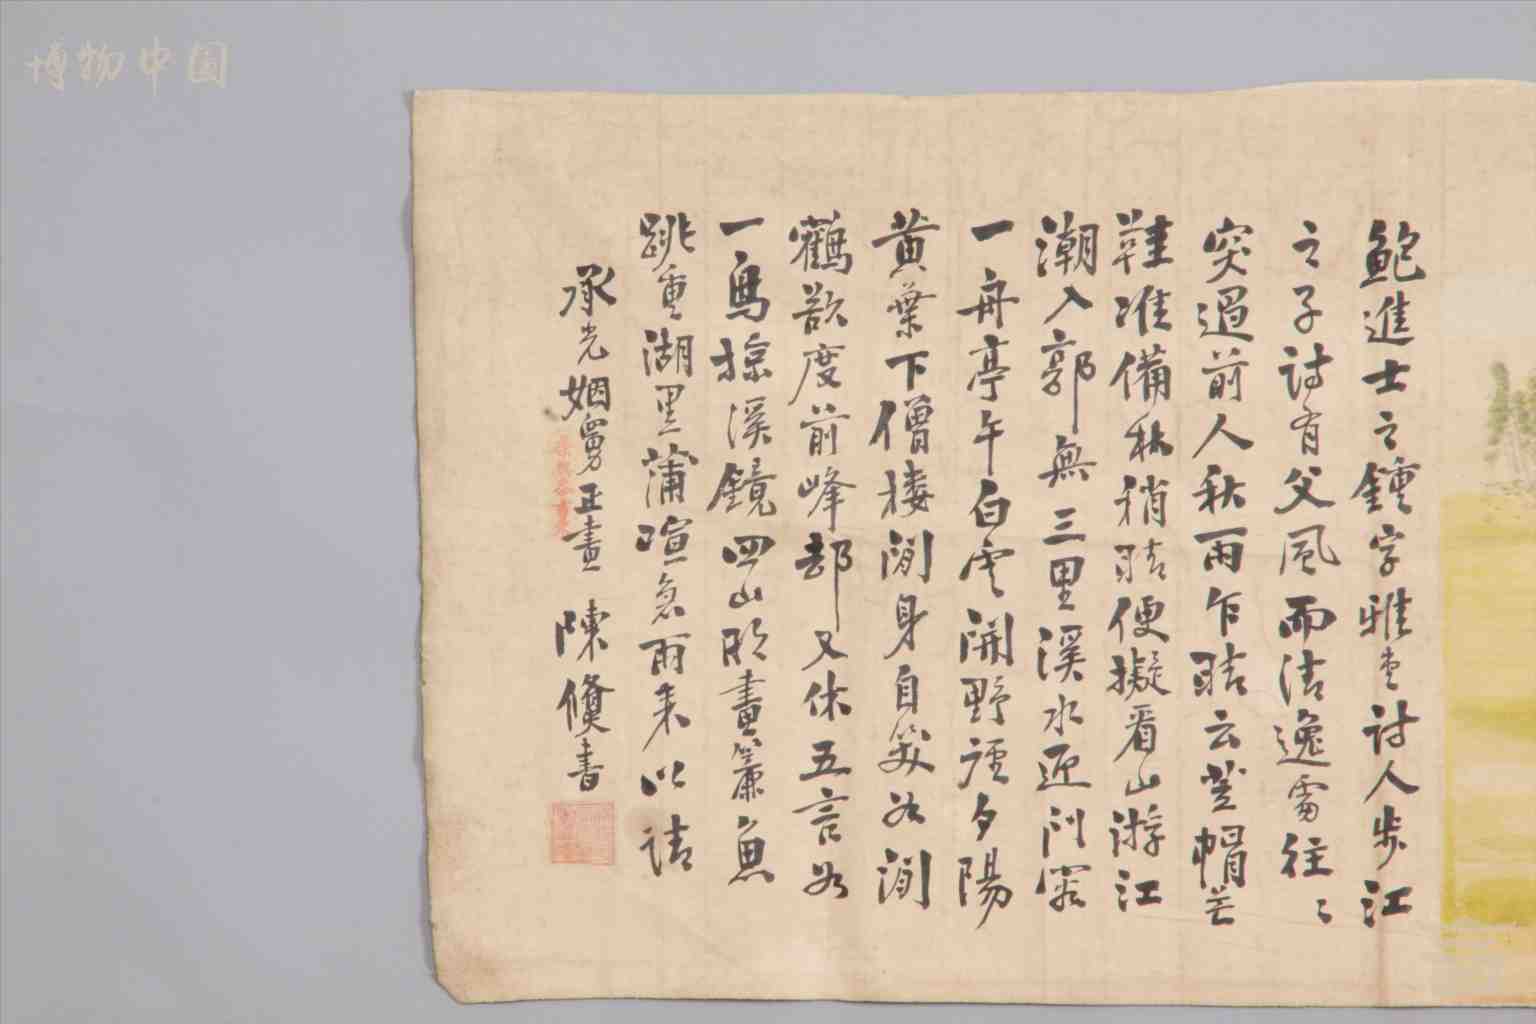 鮑進士之鍾字雅堂詩人步江
之子詩有父風而清逸處往〻
突過前人秋雨乍晴云葛帽芒
鞋准備秋稍晴便擬看山游江
潮入郭無三里溪水迎門寄
一舟亭午白雲開野徑夕陽
黃葉下僧樓閒身自笑如閒
鶴欲度前峰却又休五言如
一鳥掠溪鏡四山明畫簾魚
跳重湖黑蒲喧急雨來以請
承光姻舅正畫 陳 書
博物中国